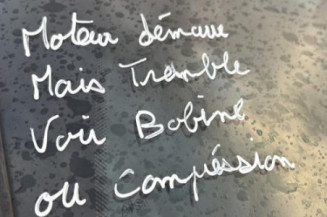 Moteur démarre
Mais Tremble
Voir Bobine
ou Compréssion